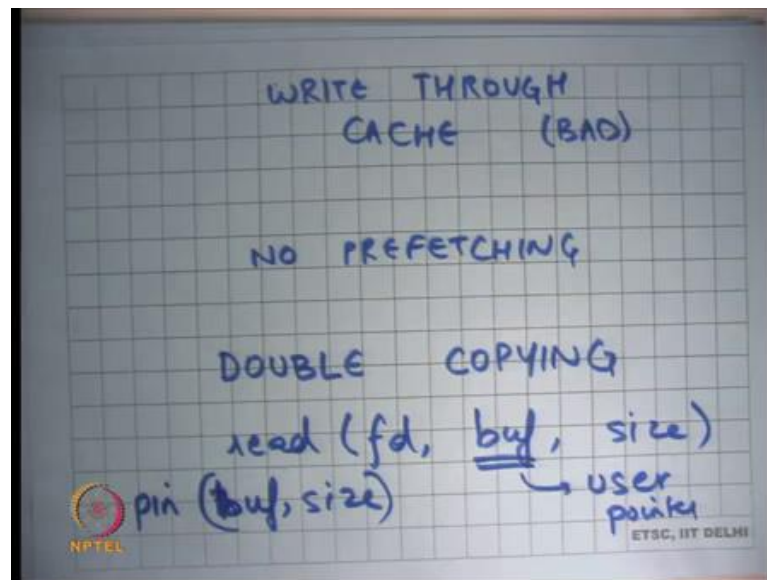 WRITE THROUGH
CACHE (BAD)
NO PREFETCHING
DOUBLE COPYING
read (fd, buf, size)
pin (buf, size)
user
pointer
NPTEL
ETSC, IIT DELHI